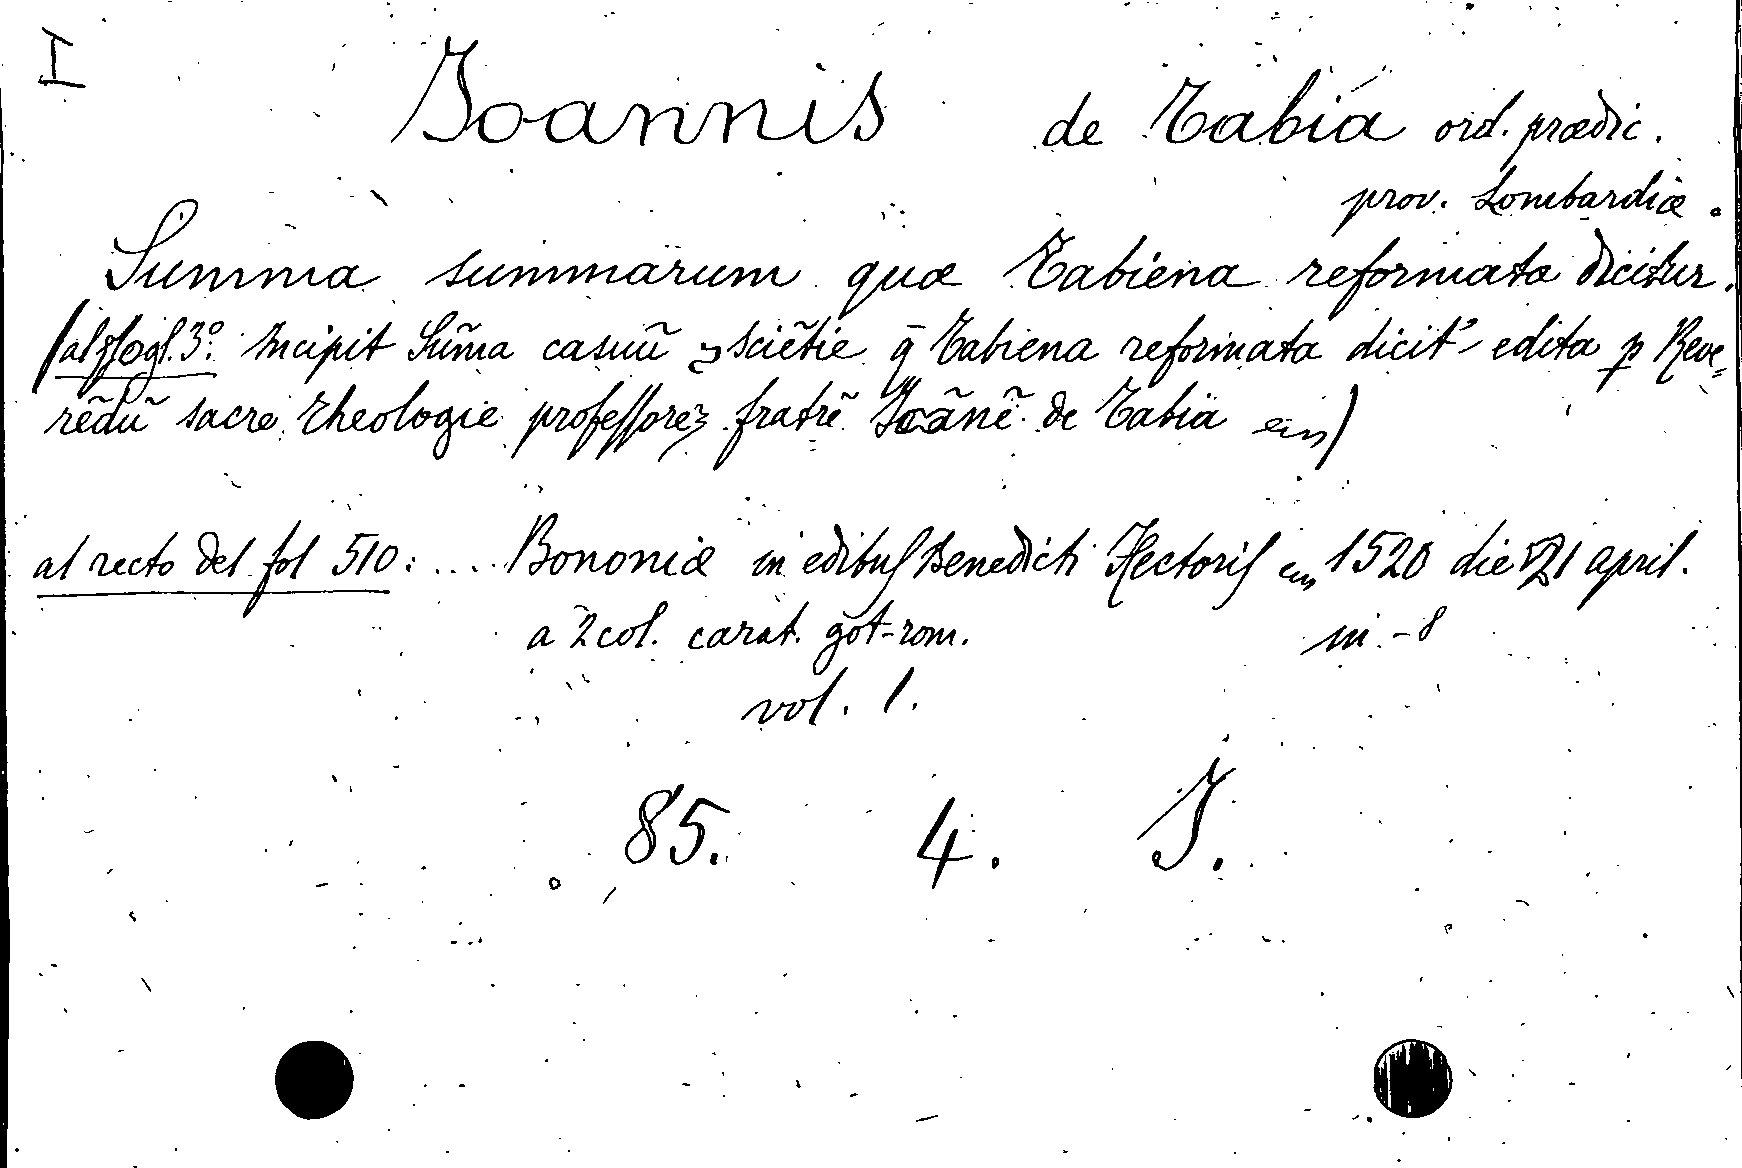 I
Joannis de Tabia ord. prædic.
prov. Lombardiæ.
Summa summarum quæ Tabiena reformata dicitur.
(al fogl. 3º: Incipit Sũma casuũ ꝯsciẽtie q̄ Tabiena reformata dicit' edita ꝑ Reve=
rẽdũ sacre theologie professorẽ fratrẽ Joãnẽ de Tabia
al recto del fol 510: .... Bononiæ in edibus Benedicti Hectoris 1520 die 21 april.
a 2 col. carat. got-rom. in-8
vol. 1.
85. 4. J.